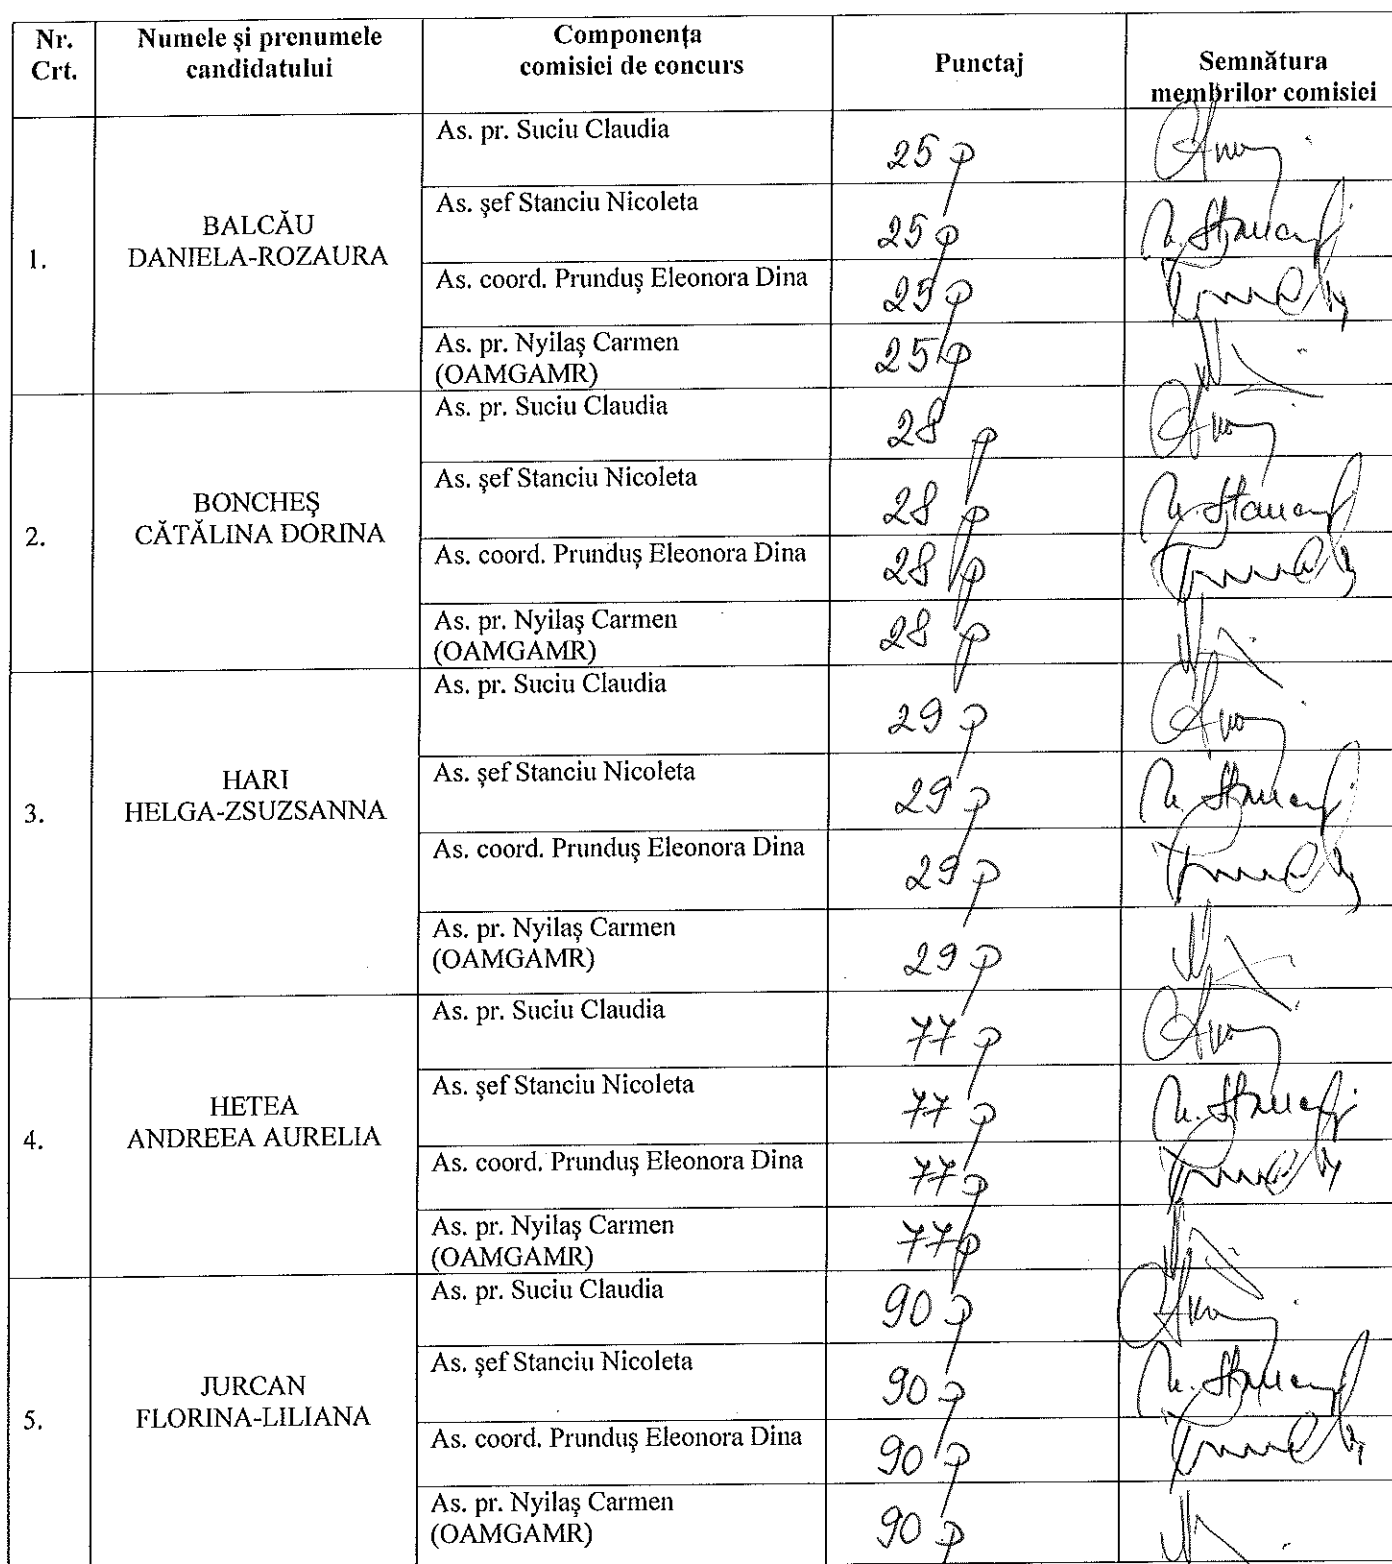 Nr. Crt.
Numele și prenumele candidatului
Componența comisiei de concurs
Punctaj
Semnătura membrilor comisiei
1.
BALCĂU
DANIELA-ROZAURA
As. pr. Suciu Claudia
25 p
As. șef Stanciu Nicoleta
25 p
As. coord. Prunduș Eleonora Dina
25 p
As. pr. Nyilaș Carmen
(OAMGAMR)
25 p
2.
BONCHEȘ
CĂTĂLINA DORINA
As. pr. Suciu Claudia
28 p
As. șef Stanciu Nicoleta
28 p
As. coord. Prunduș Eleonora Dina
28 p
As. pr. Nyilaș Carmen
(OAMGAMR)
28 p
3.
HARI
HELGA-ZSUZSANNA
As. pr. Suciu Claudia
29 p
As. șef Stanciu Nicoleta
29 p
As. coord. Prunduș Eleonora Dina
29 p
As. pr. Nyilaș Carmen
(OAMGAMR)
29 p
4.
HETEA
ANDREEA AURELIA
As. pr. Suciu Claudia
77 p
As. șef Stanciu Nicoleta
77 p
As. coord. Prunduș Eleonora Dina
77 p
As. pr. Nyilaș Carmen
(OAMGAMR)
77 p
5.
JURCAN
FLORINA-LILIANA
As. pr. Suciu Claudia
90 p
As. șef Stanciu Nicoleta
90 p
As. coord. Prunduș Eleonora Dina
90 p
As. pr. Nyilaș Carmen
(OAMGAMR)
90 p